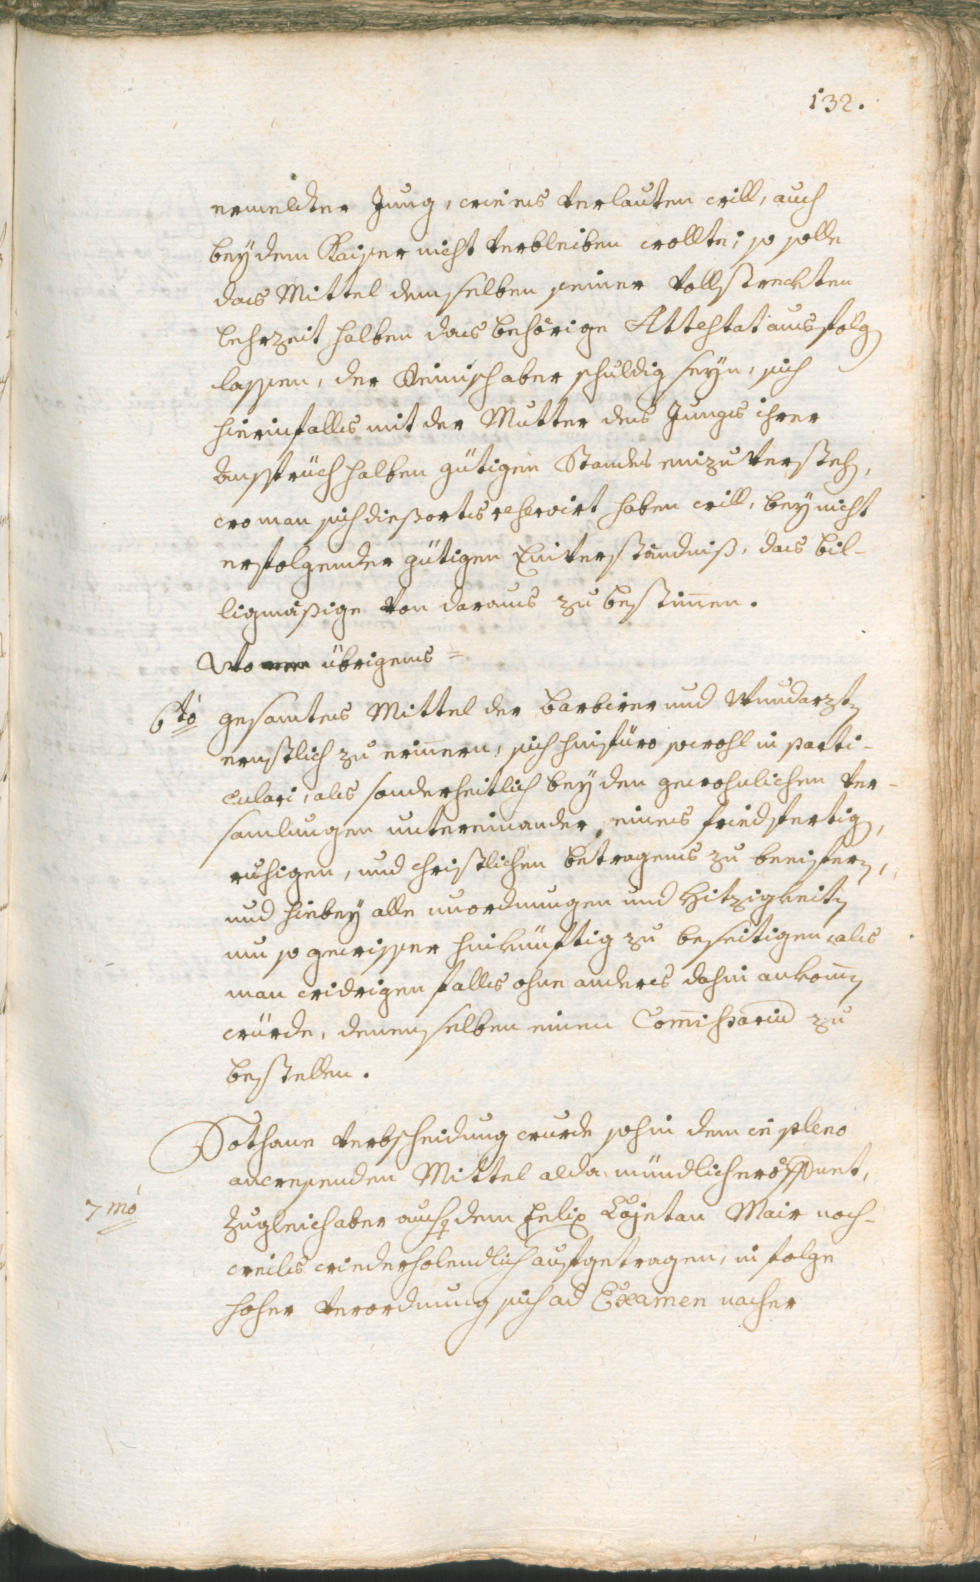 132.
ermeldter Jung, wie es verlauten will, auch
bey dem Kaiser nicht verbleiben wollte; so solle
das Mittel demselben seiner vollstreckten
Lehrzeit halben das behörige Attestat ausfolg
lassen, der aber schuldig seyn, sich
hierinfalls mit der Mutter des Jungs ihrer
Anspruch halben gütigen Standes einzuversteh,
wo man sich diesorts reservirt haben will, bey nicht
erfolgender gütigen Einverständniß, das bil-
ligmäßige von daraus zu bestimen.
Wo übrigens =
6to gesamtes Mittel der Barbierer und Wundarzt
ernstlich zu erinnern, sich hinfüro sowohl in parti-
culari, als sonderheitlich bey den gewohnlichen Ver-
samlungen untereinander eines friedfertig,
ruhigen, und christlichen Betragens zu beeifern,
und hiebey alle unordnungen und Hitzigkeit
um so gewisser hinkünftig zu beseitigen, als
man widrigen falls ohne anders dahin ankom
würde, denenselben einen Commissarium zu
bestellen.
Sothane Verbscheidung wurde sohin dem in pleno
anwesenden Mittel alda mündlich eröffnet,
7mo zugleich aber auch dem Felix Cajetan Mair noch-
weils wiederholendlich aufgetragen, in folge
hoher Verordnung sich ad Examen nacher